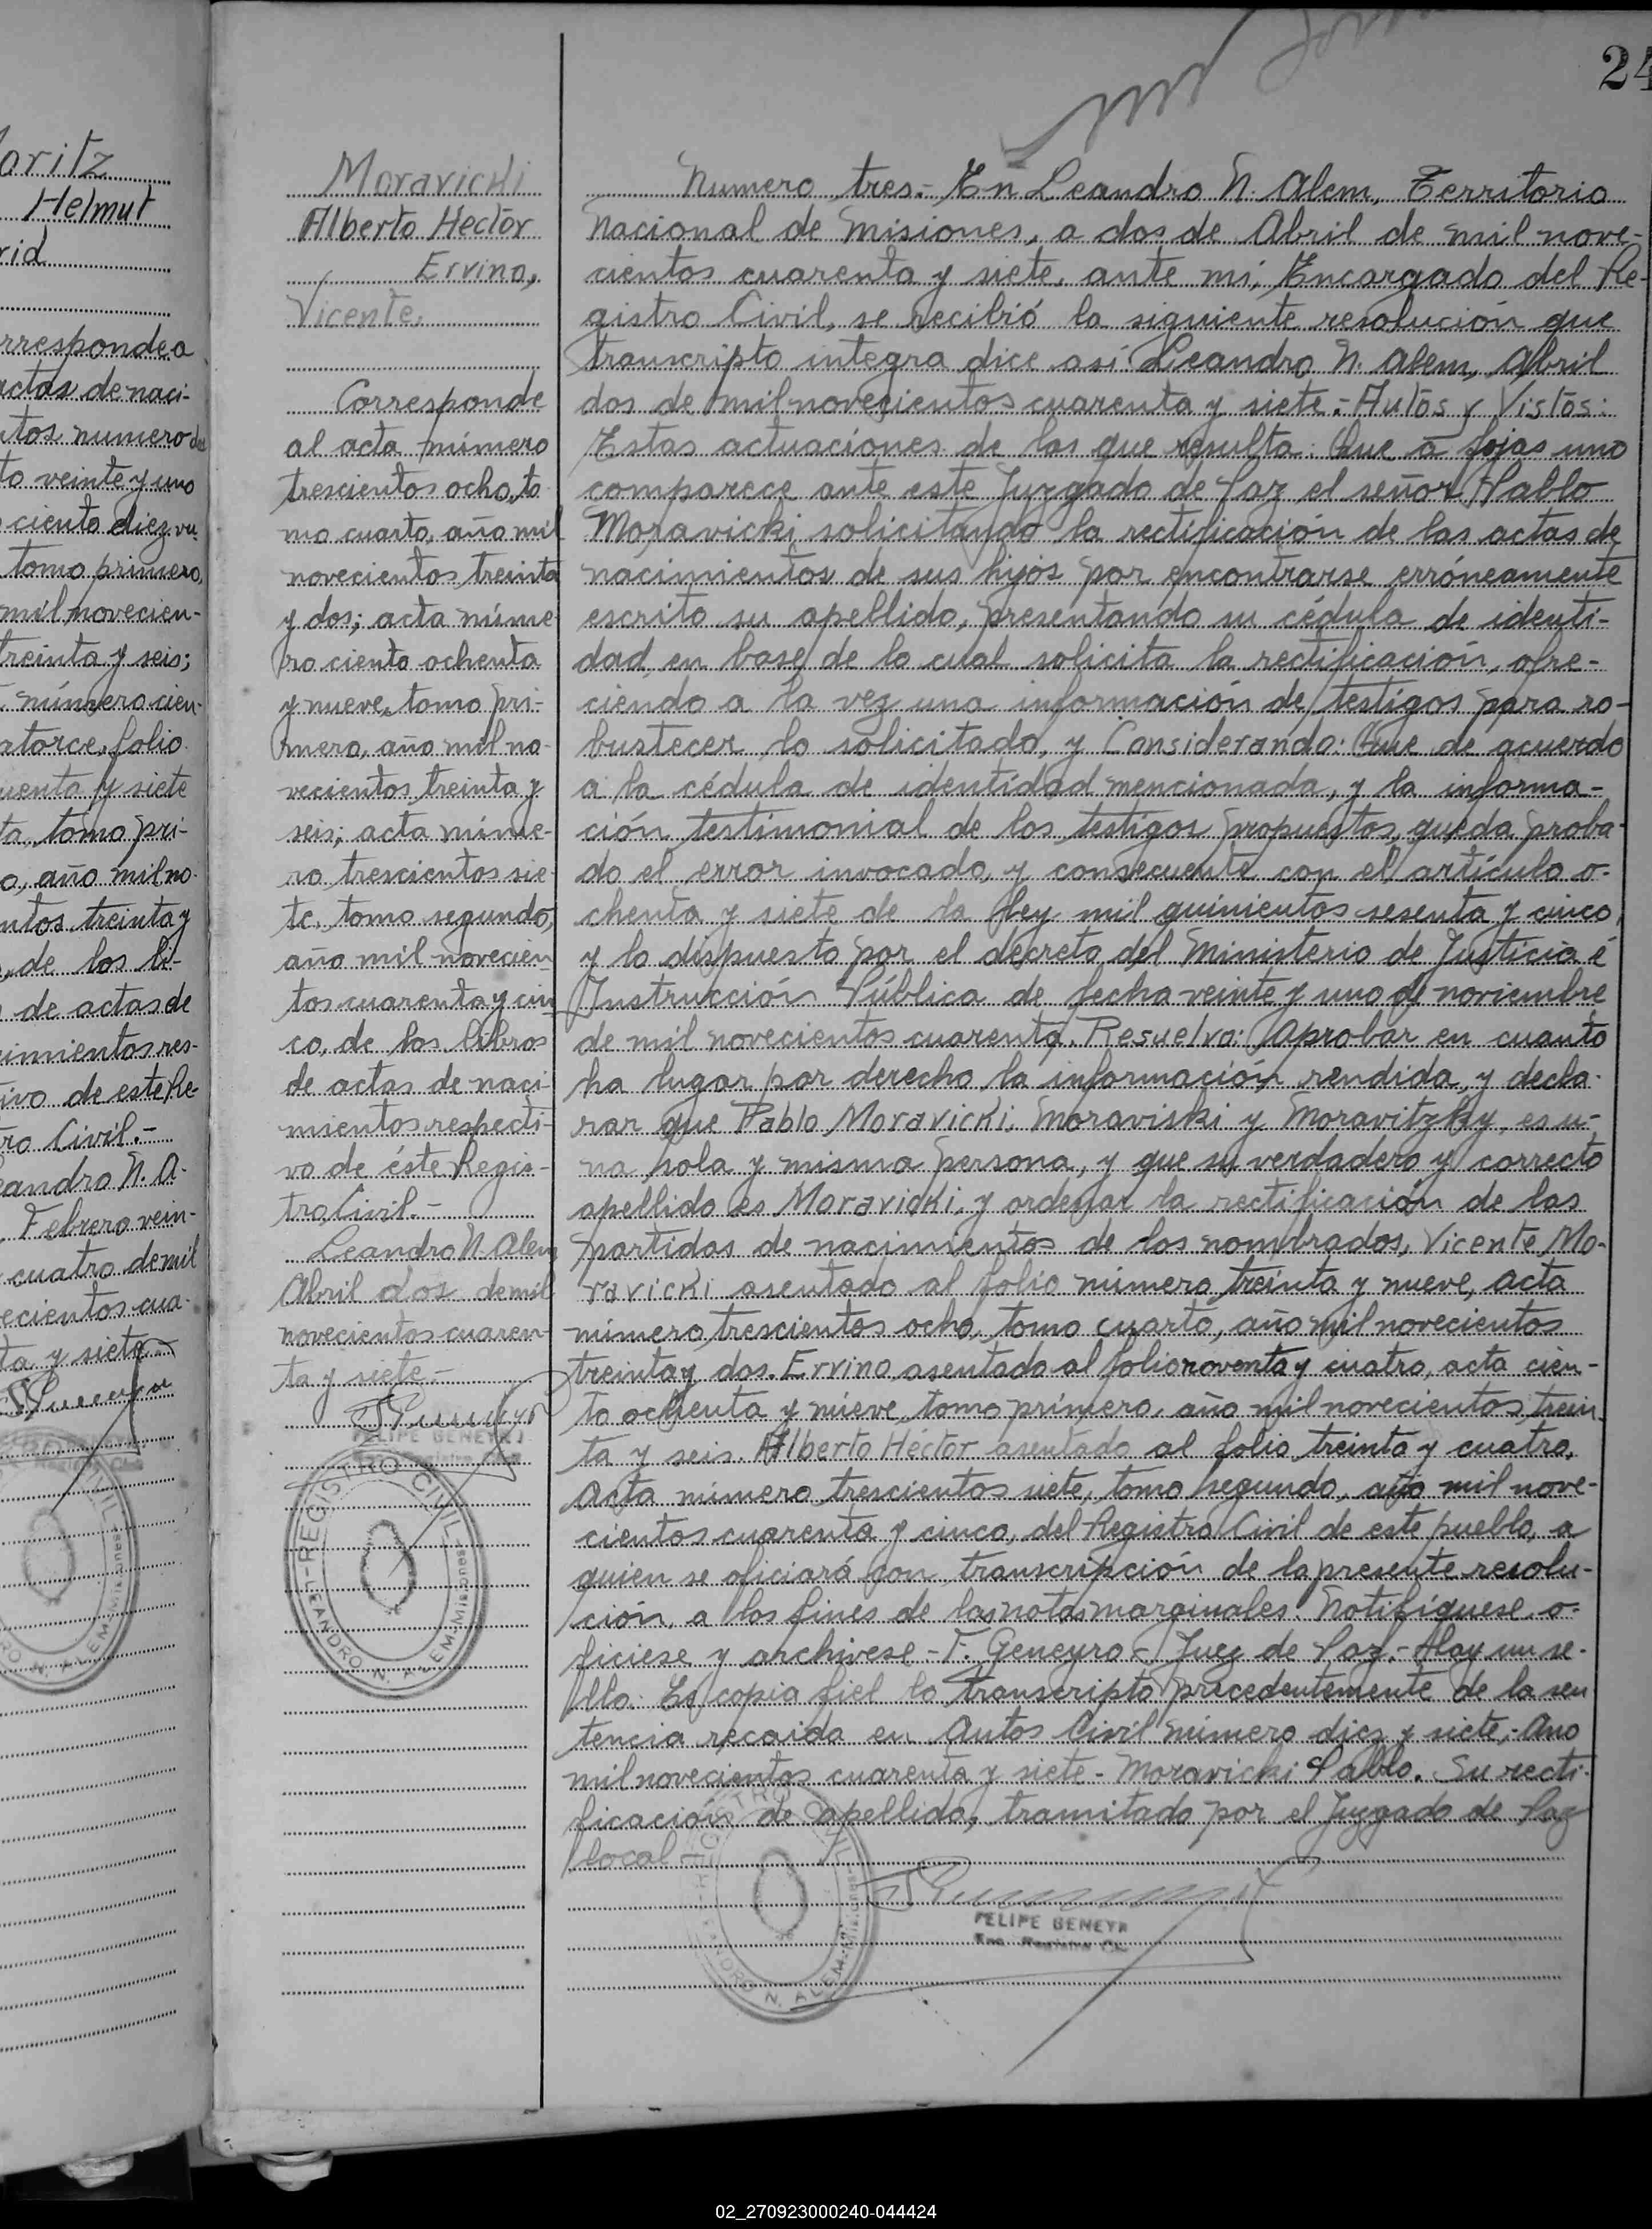 24
oritz
Helmut
rid
rrespondea
actas de naci-
tos numero do
to veinte y uno
ciento diez, vu
tomo primero,
mil novecien-
treinta y seis;
número cien-
atorce, folio
uenta y siete
ta, tomo pri-
o, año mil no-
ntos treinta y
, de los li-
de actas de
imientos res-
ivo de este Re-
ro Civil.-
eandro N. A-
Febrero vein-
cuatro de mil
ecientos cua-
ta y siete
Moravicki
Alberto Hector
Ervino,
Vicente.
Corresponde
al acta número
trescientos ocho, to
mo cuarto, año mil
novecientos treinta
y dos; acta núme-
ro ciento ochenta
y nueve, tomo pri-
mero, año mil no-
vecientos treinta y
seis; acta núme-
ro trescientos sie-
te, tomo segundo,
año mil novecien
tos cuarenta y cin
co, de los libros
de actas de naci-
mientos respecti-
vo de éste Regis-
tro Civil.-
Leandro N. Alem,
Abril dos de mil
novecientos cuaren-
ta y siete.-
FELIPE GENEYRO
REGISTRO CIVIL
LEANDRO N. ALEM-Misiones
Numero tres.- En Leandro N. Alem, Territorio
Nacional de Misiones, a dos de Abril de mil nove-
cientos cuarenta y siete, ante mi, Encargado del Re-
gistro Civil, se recibió la siguiente resolución que
transcripto integra dice así Leandro N. Alem, Abril
dos de mil novecientos cuarenta y siete.- Autos y Vistos:
Estas actuaciones de las que resulta: Que a fojas uno
comparece ante este Juzgado de Paz el señor Pablo
Moravicki solicitando la rectificación de las actas de
nacimientos de sus hijos por encontrarse erróneamente
escrito su apellido, presentando su cédula de identi-
dad, en base de la cual solicita la rectificación, ofre-
ciendo a la vez una información de testigos para ro-
bustecer lo solicitado, y Considerando: Que de acuerdo
a la cédula de identidad mencionada, y la informa-
ción testimonial de los testigos propuestos, queda proba-
do el error invocado, y consecuente con el artículo o-
chenta y siete de la ley mil quinientos sesenta y cinco,
y lo dispuesto por el decreto del Ministerio de Justicia é
Instrucción Pública de fecha veinte y uno de noviembre
de mil novecientos cuarenta. Resuelvo: Aprobar en cuanto
ha lugar por derecho la información rendida, y decla-
rar que Pablo Moravicki, Moraviski y Moravitzky, es u-
na sola y misma persona, y que su verdadero y correcto
apellido es Moravicki, y ordenar la rectificación de las
partidas de nacimientos de los nombrados, Vicente Mo-
ravicki asentado al folio número treinta y nueve, acta
número trescientos ocho, tomo cuarto, año mil novecientos
treinta y dos. Ervino asentado al folio noventa y cuatro, acta cien-
to ochenta y nueve, tomo primero, año mil novecientos trein-
ta y seis. Alberto Héctor asentado al folio treinta y cuatro,
acta número trescientos siete, tomo segundo, año mil nove-
cientos cuarenta y cinco, del Registro Civil de este pueblo, a
quien se oficiará con transcripción de la presente resolu-
ción, a los fines de las notas marginales. Notifíquese, o-
ficiese y archivese - F. Geneyro - Juez de Paz.- Hay un se-
llo. Es copia fiel lo transcripto precedentemente de la sen
tencia recaida en Autos Civil número diez y siete.- Ano
mil novecientos cuarenta y siete - Moravicki Pablo. Su recti-
ficación de apellido, tramitado por el Juzgado de Paz
local.-
FELIPE GENEYR
Enc. Registro Civ
LEANDRO N. ALEM-Misiones
02_270923000240-044424